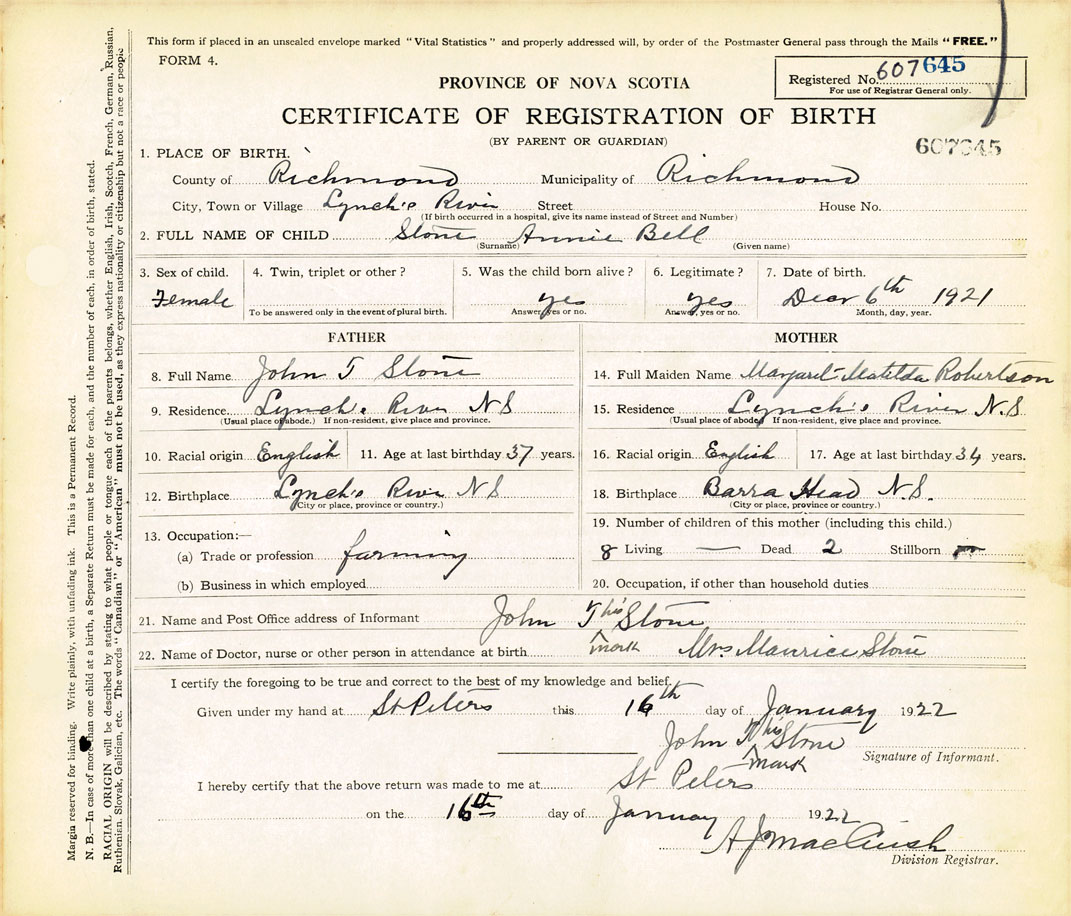 This form if placed in an unsealed envelope marked "Vital Statistics" and properly addressed will, by order of the Postmaster General pass through the Mails "FREE."
FORM 4.
Registered No. 607645
For use of Registrar General only.
PROVINCE OF NOVA SCOTIA
CERTIFICATE OF REGISTRATION OF BIRTH
(BY PARENT OR GUARDIAN)
607645
1. PLACE OF BIRTH.
County of Richmond Municipality of Richmond
City, Town or Village Lynch's River Street House No.
(If birth occurred in a hospital, give its name instead of Street and Number)
2. FULL NAME OF CHILD Stone Annie Bell
(Surname) (Given name)
3. Sex of child. 4. Twin, triplet or other? 5. Was the child born alive? 6. Legitimate? 7. Date of birth.
Female yes yes Decr 6th 1921
To be answered only in the event of plural birth. Answer yes or no. Answer yes or no. Month, day, year.
FATHER MOTHER
8. Full Name John T Stone 14. Full Maiden Name Margaret Matilda Robertson
9. Residence. Lynch's River N S 15. Residence Lynch's River N.S
(Usual place of abode.) If non-resident, give place and province. (Usual place of abode) If non-resident, give place and province.
10. Racial origin English 11. Age at last birthday 37 years. 16. Racial origin English 17. Age at last birthday 34 years.
12. Birthplace Lynch's River N S 18. Birthplace Barra Head N.S.
(City or place, province or country.) (City or place, province or country.)
13. Occupation:— 19. Number of children of this mother (including this child.)
(a) Trade or profession farming 8 Living — Dead 2 Stillborn
(b) Business in which employed 20. Occupation, if other than household duties
21. Name and Post Office address of Informant John T his Stone
22. Name of Doctor, nurse or other person in attendance at birth mark Mrs Maurice Stone
I certify the foregoing to be true and correct to the best of my knowledge and belief.
Given under my hand at St Peters this 16th day of January 1922
John his Stone
mark Signature of Informant.
I hereby certify that the above return was made to me at St Peters
on the 16th day of January 1922
A J MacCuish
Division Registrar.
Margin reserved for binding. Write plainly, with unfading ink. This is a Permanent Record.
N. B.—In case of more than one child at a birth, a Separate Return must be made for each, and the number of each, in order of birth, stated.
RACIAL ORIGIN will be described by stating to what people or tongue each of the parents belongs, whether English, Irish, Scotch, French, German, Russian,
Ruthenian, Slovak, Galician, etc. The words "Canadian" or "American" must not be used, as they express nationality or citizenship but not a race or people